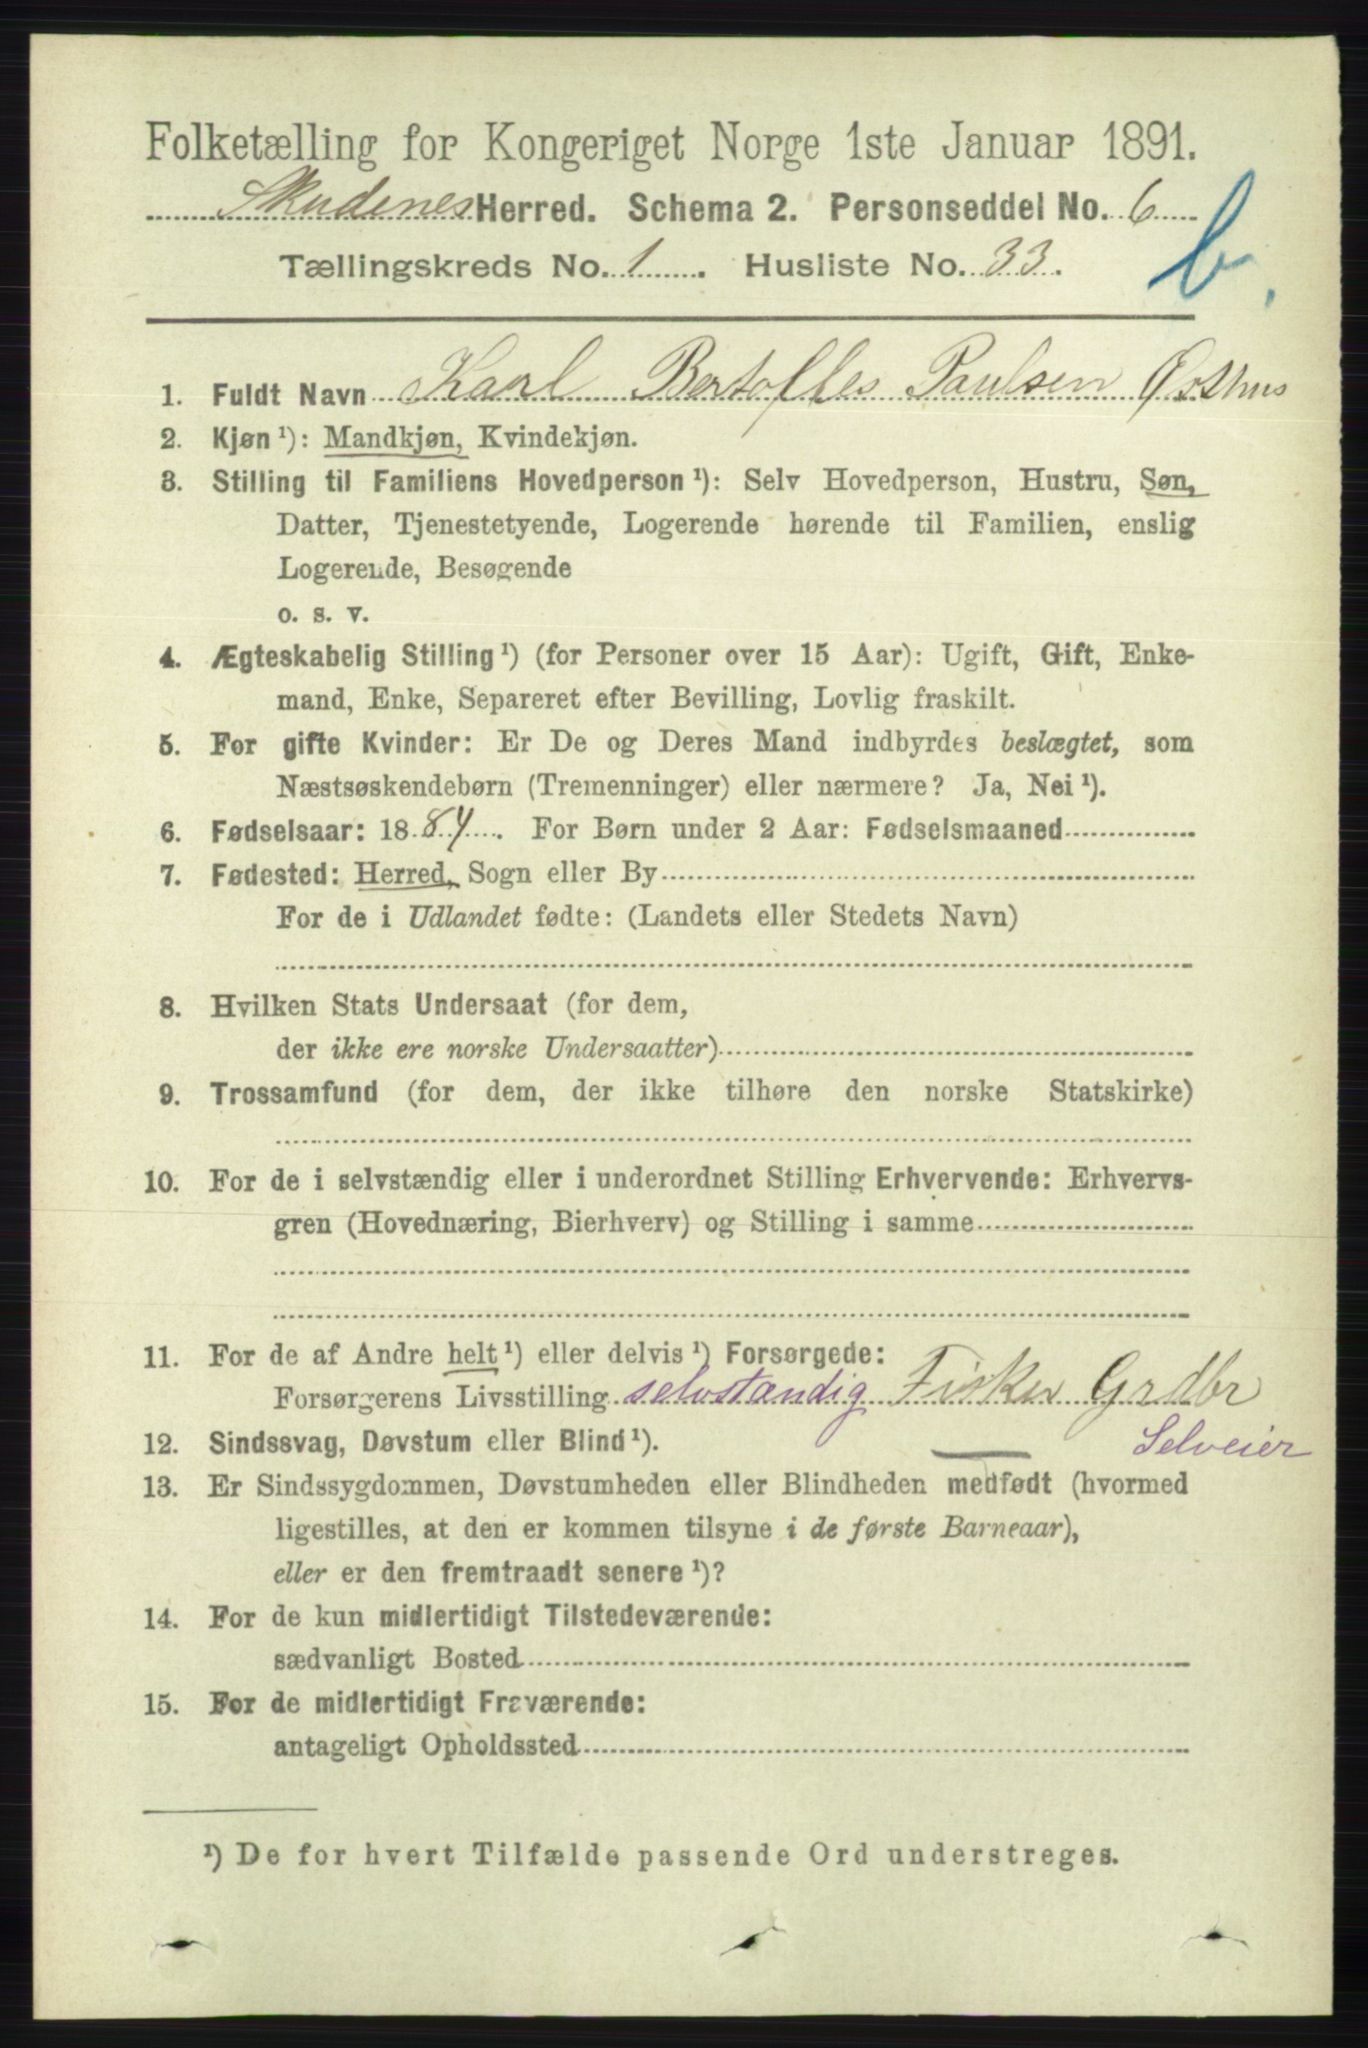 Folketælling for Kongeriget Norge 1ste Januar 1891.
Skudenes Herred. Schema 2. Personseddel No. 6
Tællingskreds No. 1. Husliste No. 33.
b.
1. Fuldt Navn Karl Paulsen Østhus
2. Kjøn ¹): Mandkjøn, Kvindekjøn.
3. Stilling til Familiens Hovedperson ¹): Selv Hovedperson, Hustru, Søn,
Datter, Tjenestetyende, Logerende hørende til Familien, enslig
Logerende, Besøgende
o. s. v.
4. Ægteskabelig Stilling ¹) (for Personer over 15 Aar): Ugift, Gift, Enke-
mand, Enke, Separeret efter Bevilling, Lovlig fraskilt.
5. For gifte Kvinder: Er De og Deres Mand indbyrdes beslægtet, som
Næstsøskendebørn (Tremenninger) eller nærmere? Ja, Nei ¹).
6. Fødselsaar: 1884. For Børn under 2 Aar: Fødselsmaaned
7. Fødested: Herred, Sogn eller By
For de i Udlandet fødte: (Landets eller Stedets Navn)
8. Hvilken Stats Undersaat (for dem,
der ikke ere norske Undersaatter)
9. Trossamfund (for dem, der ikke tilhøre den norske Statskirke)
10. For de i selvstændig eller i underordnet Stilling Erhvervende: Erhvervs-
gren (Hovednæring, Bierhverv) og Stilling i samme
11. For de af Andre helt ¹) eller delvis ¹) Forsørgede:
Forsørgerens Livsstilling selvstændig Fisker Grdbr
Selveier
12. Sindssvag, Døvstum eller Blind ¹).
13. Er Sindssygdommen, Døvstumheden eller Blindheden medfødt (hvormed
ligestilles, at den er kommen tilsyne i de første Barneaar),
eller er den fremtraadt senere ¹)?
14. For de kun midlertidigt Tilstedeværende:
sædvanligt Bosted
15. For de midlertidigt Fraværende:
antageligt Opholdssted
¹) De for hvert Tilfælde passende Ord understreges.